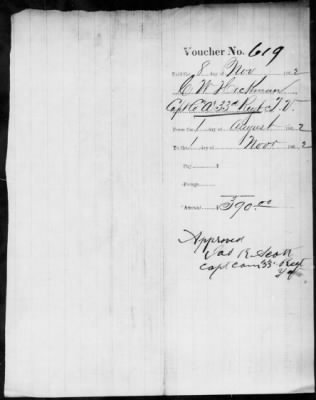 Voucher No. 619
Paid the 8 day of Nov 186 2
C W Hickman
Capt Co A 33d Regt T. V.
From the 1 day of August 186 2
To the 1 day of Novr 186 2
Pay, $
Forage,
Amount, $ 390.00
Approved
Jas R. Scott
Capt Com 33 Regt